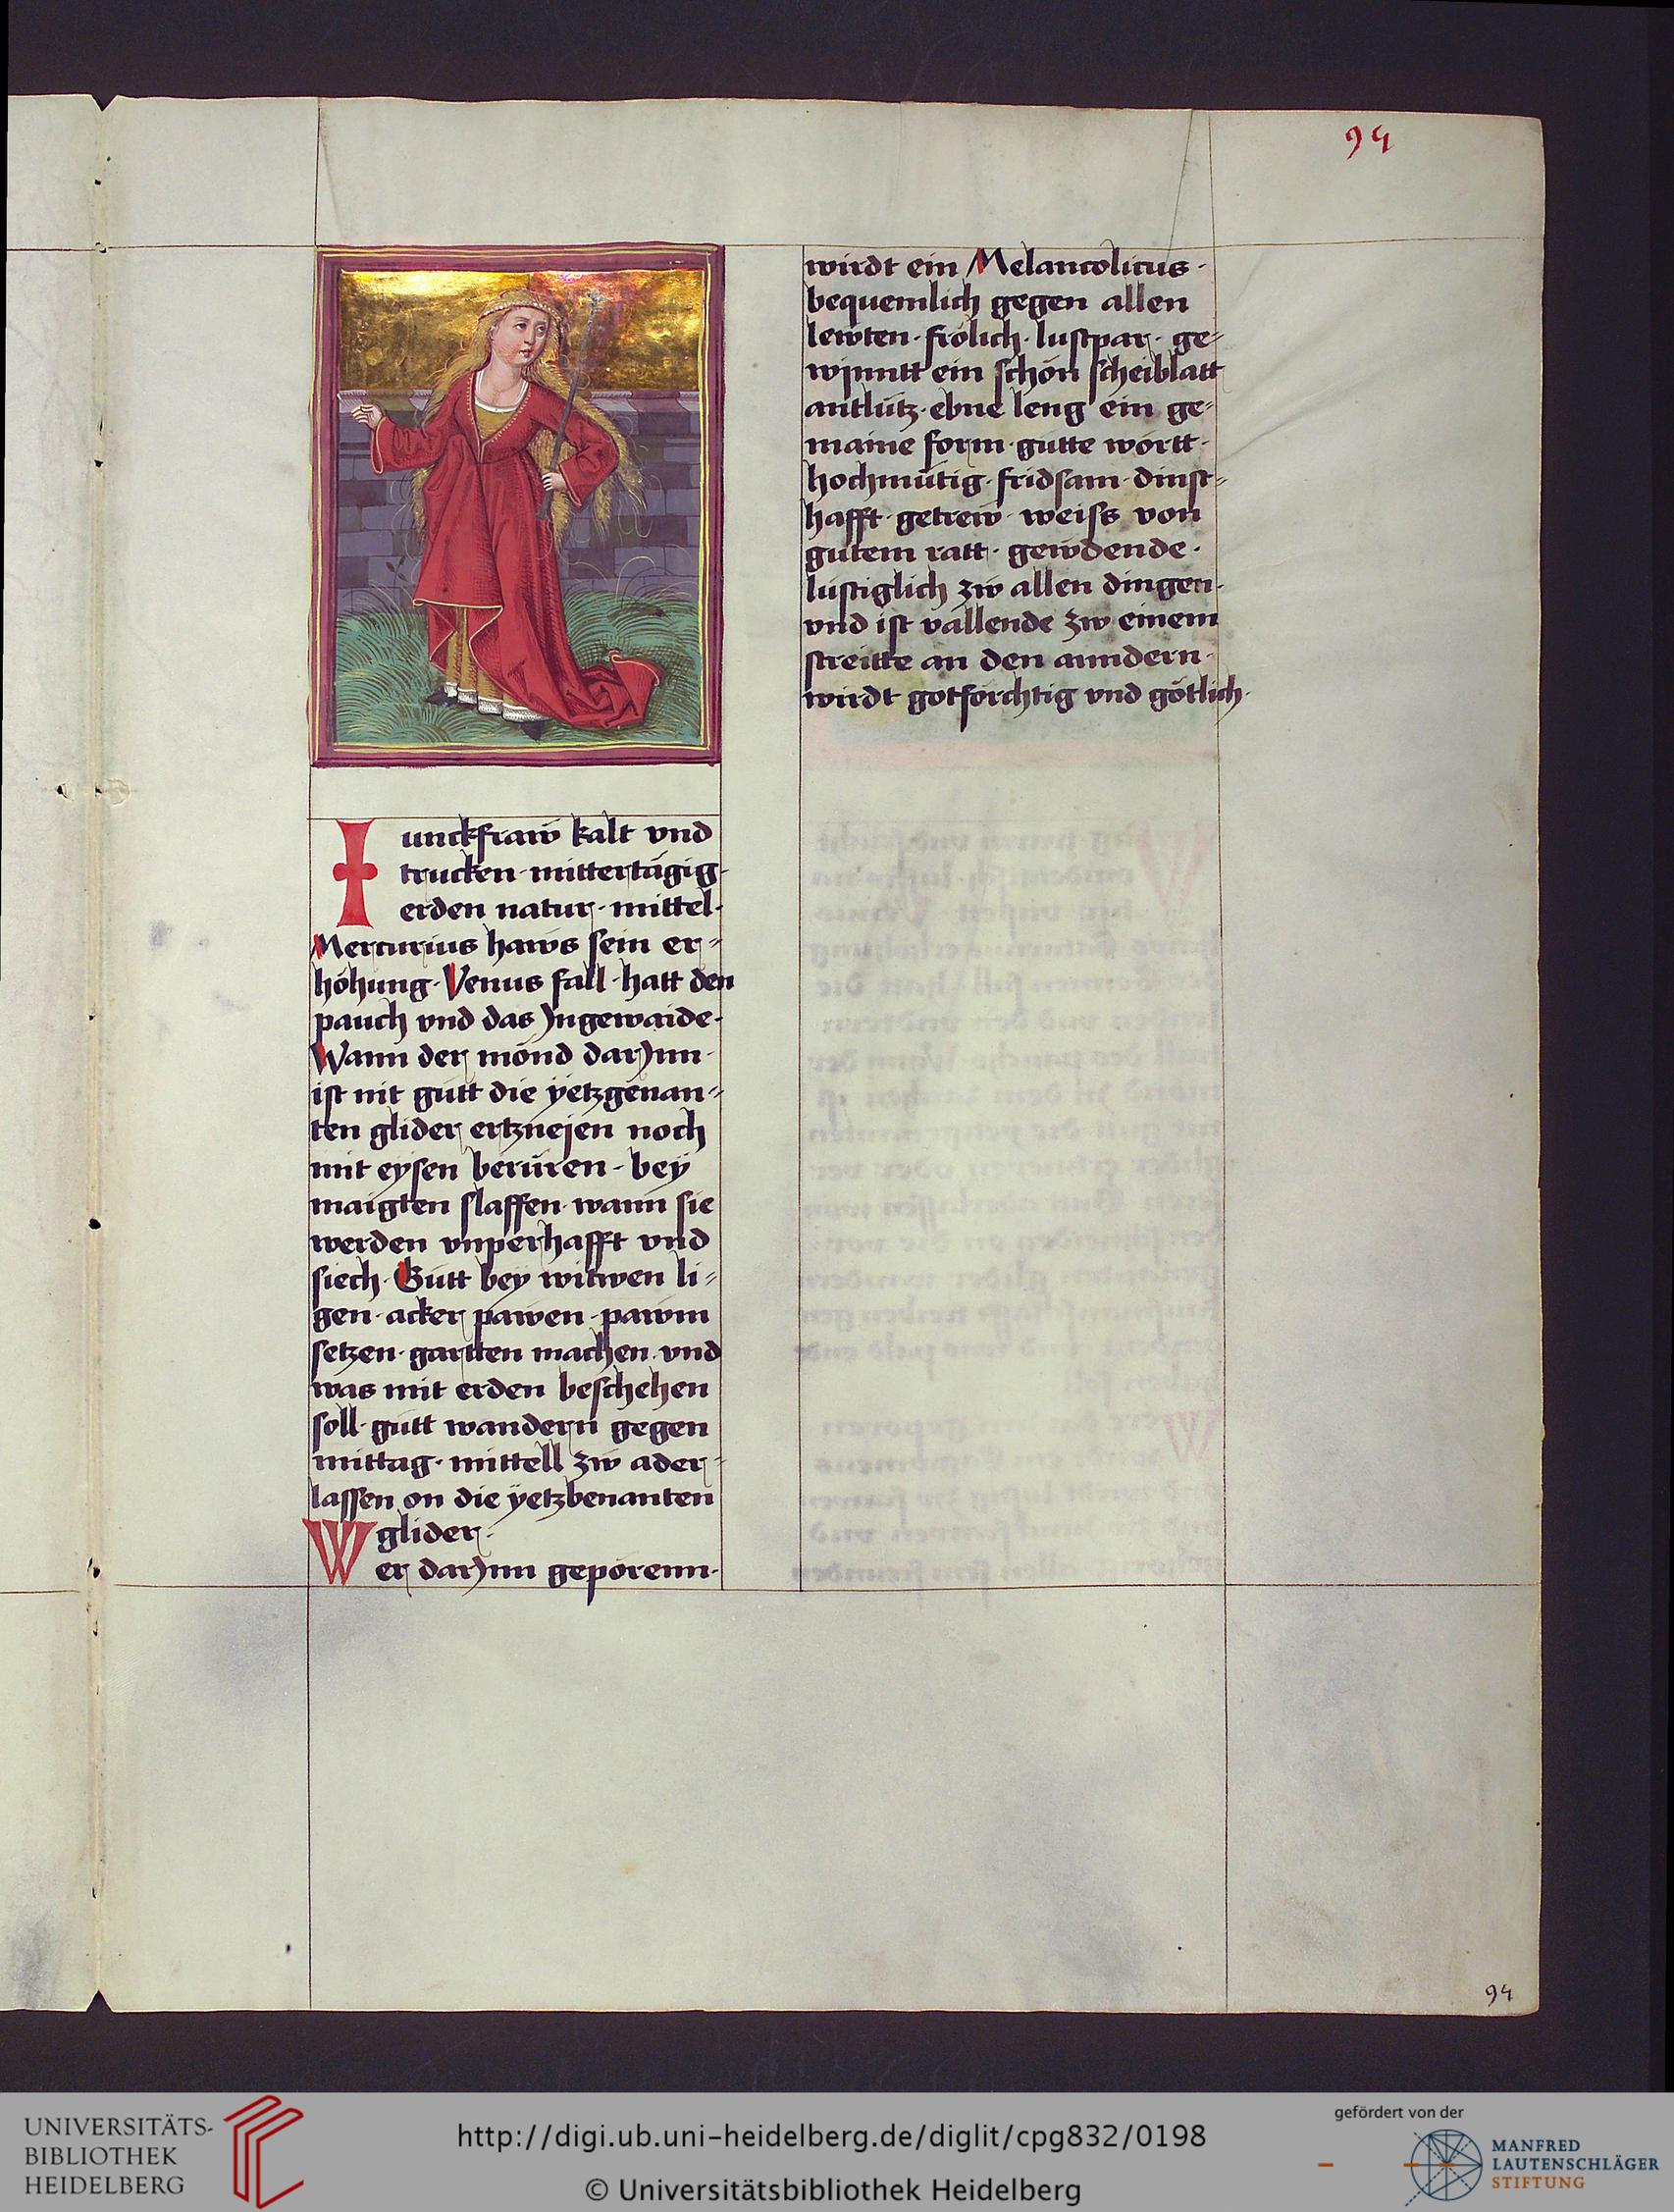 94
Iunckfraw kalt vnd
trucken · mittertägig ·
erden natur · mittel ·
Mercurius haws sein er⸗
höhung · Venus fall · hatt den
pauch vnd das Jngewaide ·
Wann der mönd darJnn ·
ist nit gütt die yetzgenan⸗
ten glider ertznejen noch
mit eysen berüren · bey
maigten slaffen · wann sie
werden vnperhafft vnd
siech · Gütt bey witwen li⸗
gen · acker pawen · pawm
setzen · gartten machen · vnd
was mit erden beschehen
soll · gütt wandern gegen
mittag · mittell zw ader⸗
lassen on die yetzbenanten
glider ·
Wer darJnn geporenn ·
wirdt ein Melancolicus ·
bequemlich gegen allen
lewten · frölich · lustpar · ge⸗
wynntt ein schön scheiblatt
antlütz · ebne leng ein ge⸗
maine form · gütte wörtt ·
hochmütig · fridsam · dinst⸗
hafft · getrew · weiss von
gütem ratt · gewdende ·
lüstiglich zw allen dingen ·
vnd ist vallende zw einem
streitte an den anndern ·
wirdt gotförchtig vnd götlich ·
94
UNIVERSITÄTS-
BIBLIOTHEK
HEIDELBERG
http://digi.ub.uni-heidelberg.de/diglit/cpg832/0198
© Universitätsbibliothek Heidelberg
gefördert von der
MANFRED
LAUTENSCHLÄGER
STIFTUNG